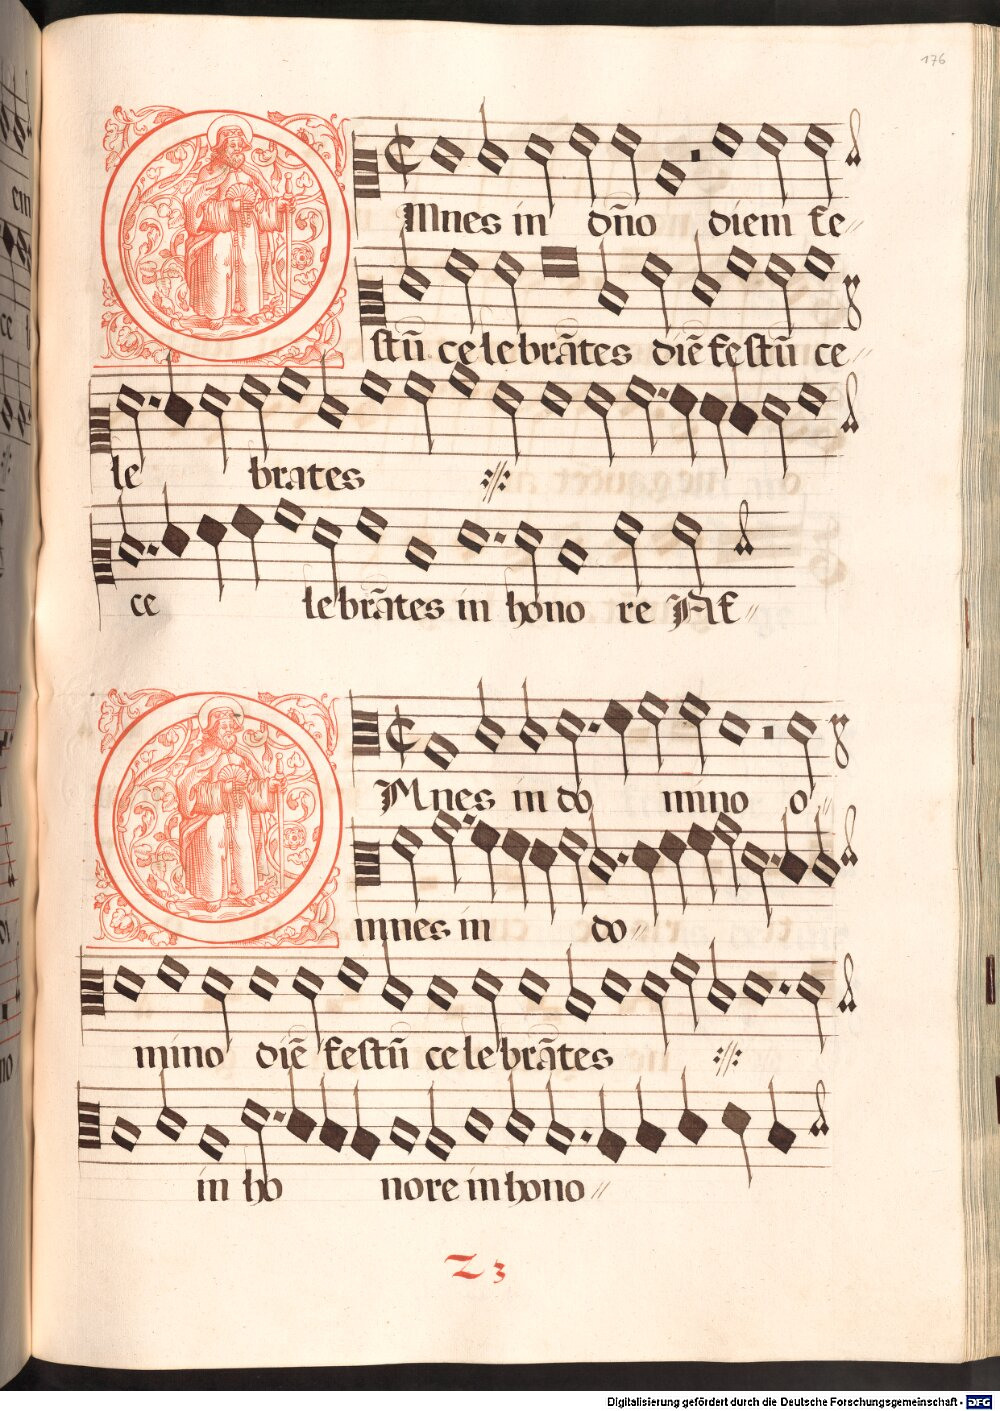 176
Omnes in dño diem fe
stū celebrātes diē festū ce
le brates :||:
ce lebrātes in hono re Ale
Omnes in do mino o
mnes in do
mino diē festū celebrātes :||:
in ho nore in hono
Z 3
Digitalisierung gefördert durch die Deutsche Forschungsgemeinschaft - DFG